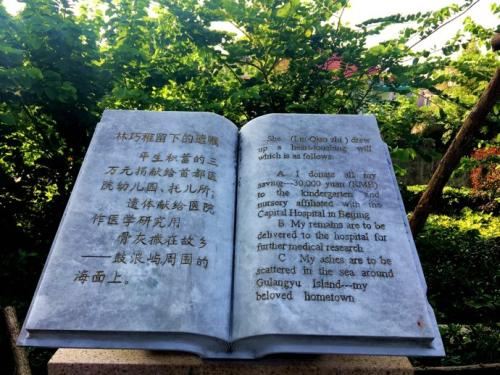 林巧稚留下的遗嘱
平生积蓄的三
万元捐献给首都医
院幼儿园、托儿所；
遗体献给医院
作医学研究用
骨灰撒在故乡
——鼓浪屿周围的
海面上。
She (Lin Qiao zhi) drew
up a heart-touching will
which is as follows:
A I donate all my
saving---30,000 yuan (RMB)
to the kindergarten and
nursery affiliated with the
Capital Hospital in Beijing
B My remains are to be
delivered to the hospital for
further medical research
C My ashes are to be
scattered in the sea around
Gulangyu Island---my
beloved hometown